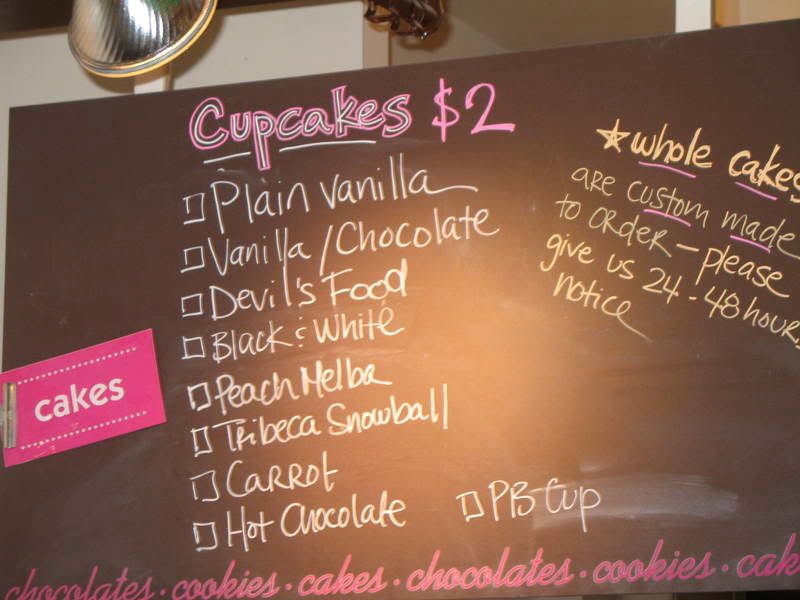 Cupcakes $2
Plain vanilla
Vanilla/Chocolate
Devil's Food
Black & White
Peach Melba
Tribeca Snowball
Carrot
Hot Chocolate
PB Cup
whole cakes
are custom made
to order - please
give us 24-48 hours
notice
cakes
chocolates · cookies · cakes · chocolates · cookies · cak